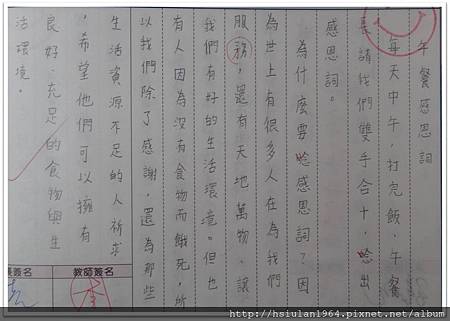 午餐感恩詞
每天中午,打完飯,午餐
長請我們雙手合十,唸出
感恩詞。
為什麼要唸感恩詞?因
為世上有很多人在為我們
服務,還有天地萬物,讓
我們有好的生活環境。但也
有人因為沒有食物而餓死,所
以我們除了感謝,還為那些
生活資源不足的人祈求
,希望他們可以擁有
良好、充足的食物與生
活環境。
教師簽名
簽名
http://hsiulan1964.pixnet.net/album